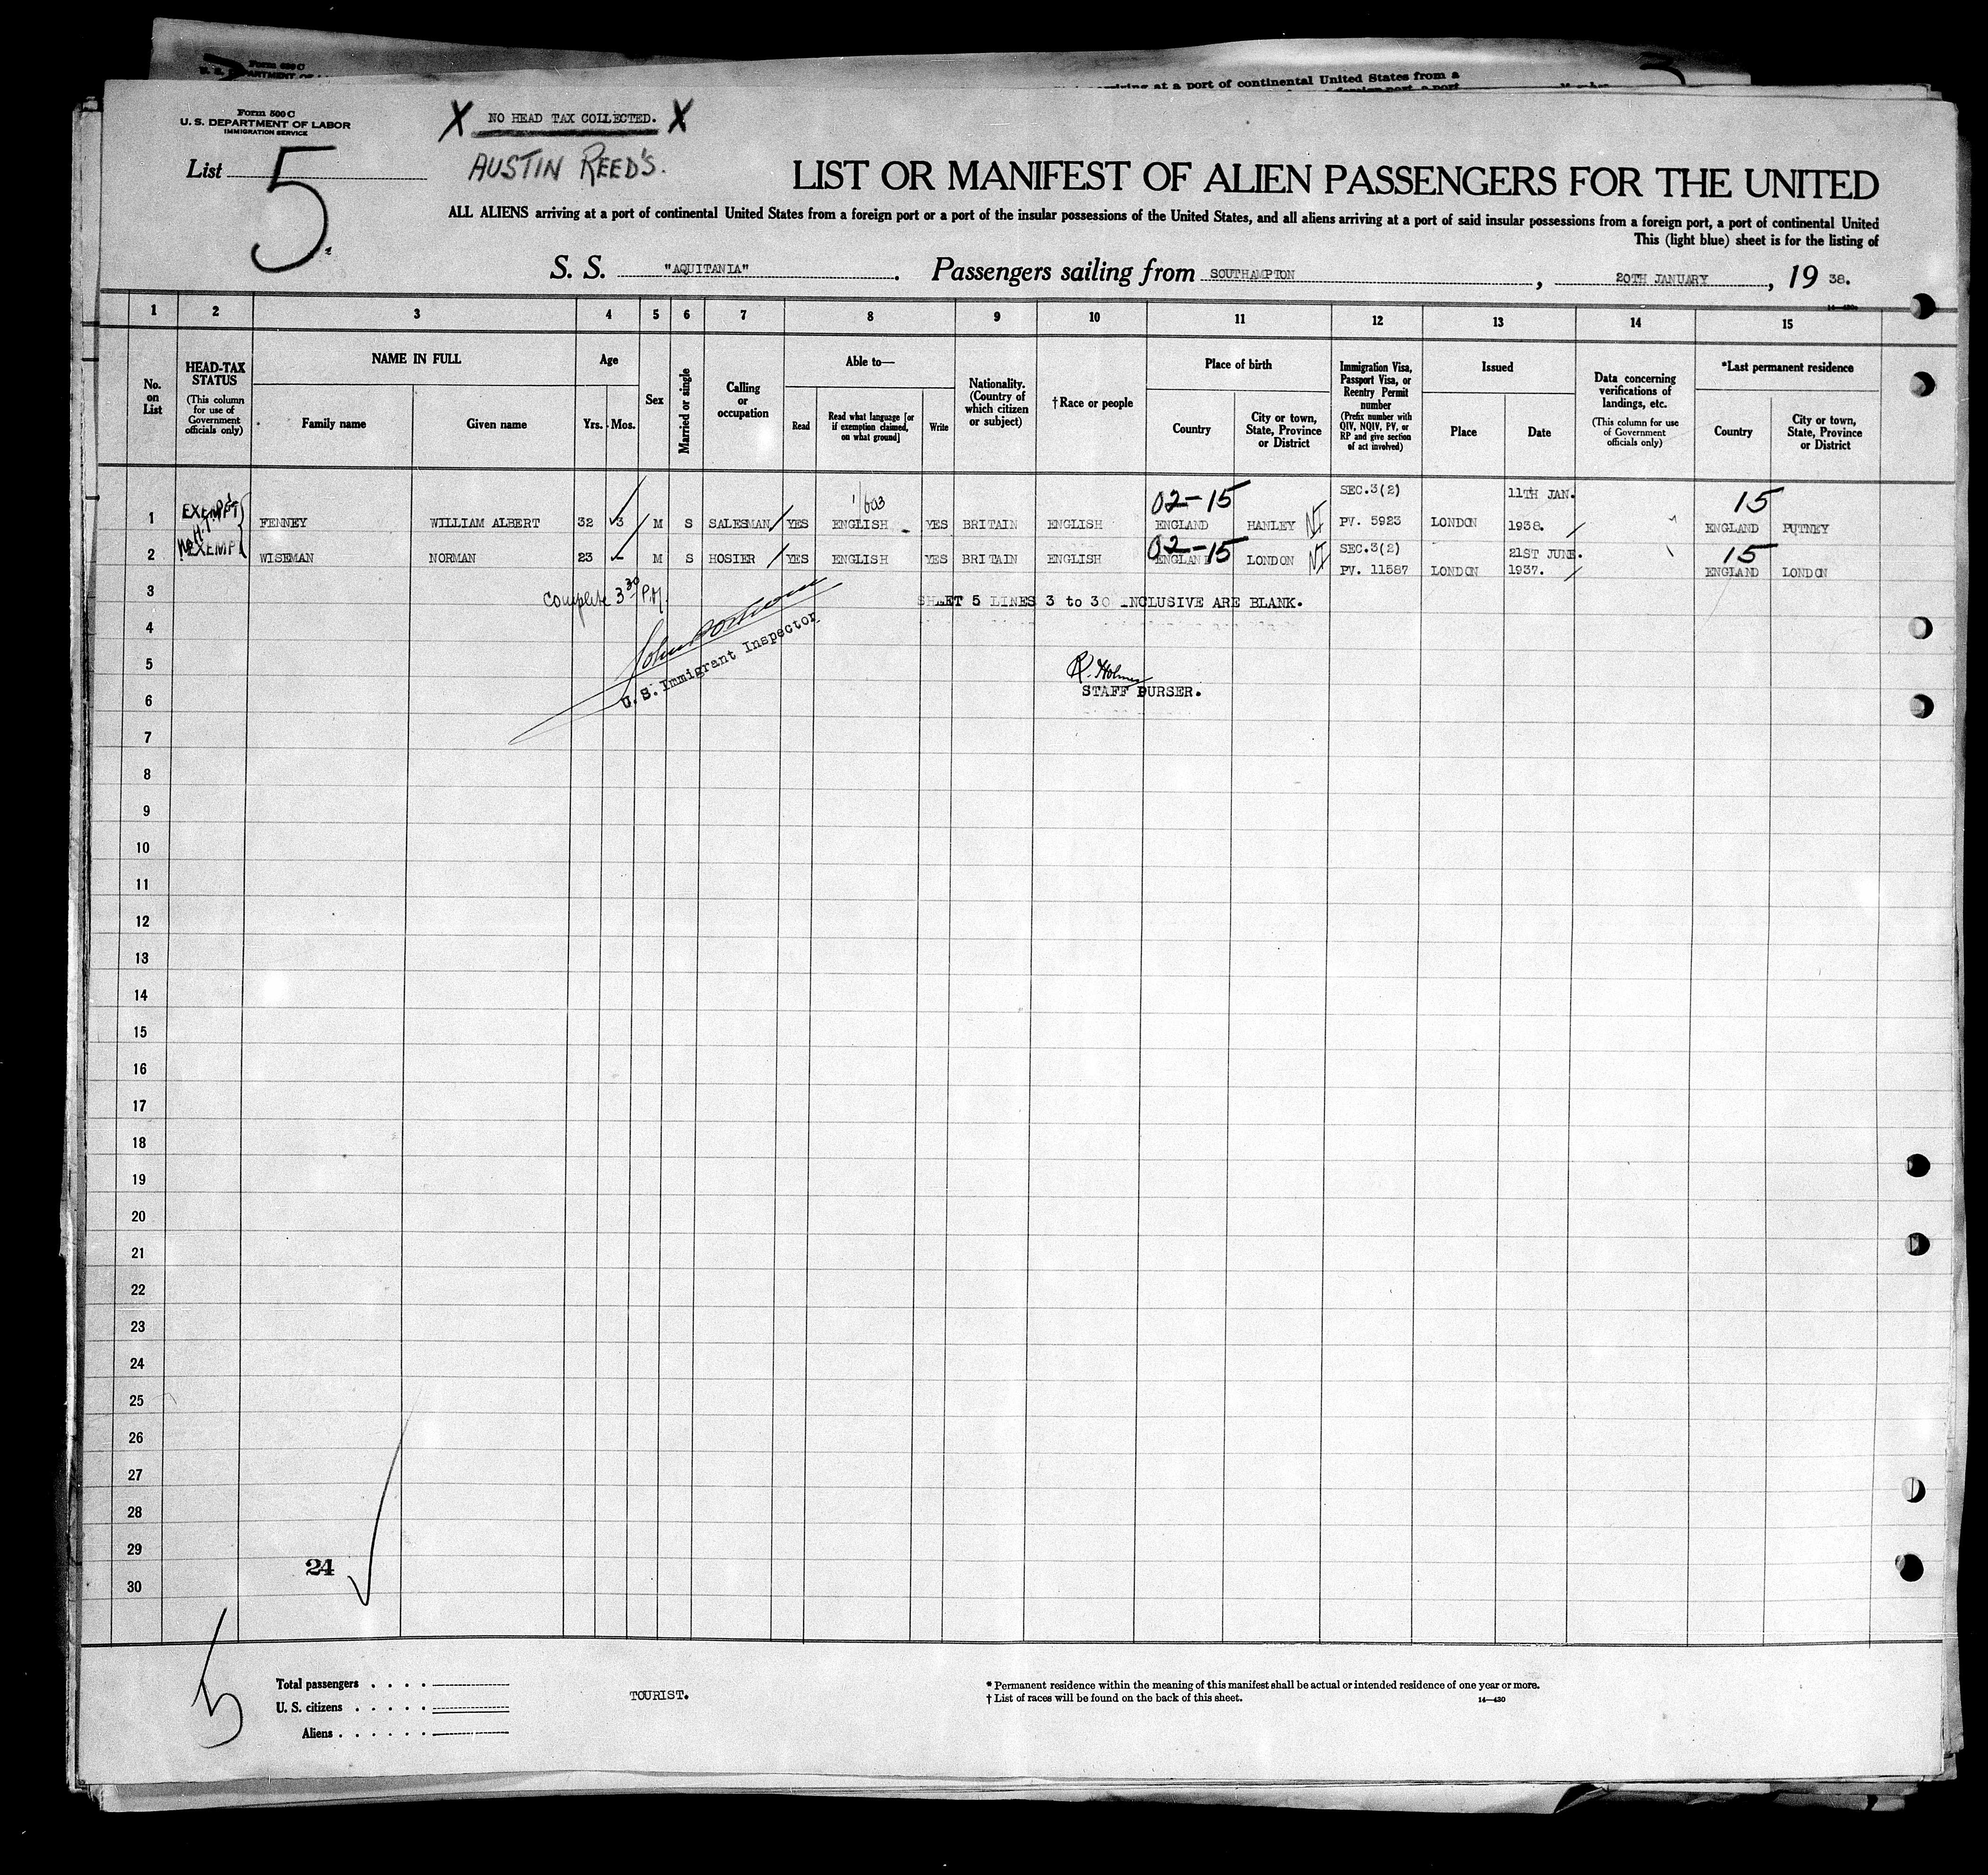 Form 630 C
U. S. DEPARTMENT OF
arriving at a port of continental United States from a
Form 500 C
U. S. DEPARTMENT OF LABOR
IMMIGRATION SERVICE
X NO HEAD TAX COLLECTED. X
AUSTIN REED'S.
List 5
LIST OR MANIFEST OF ALIEN PASSENGERS FOR THE UNITED
ALL ALIENS arriving at a port of continental United States from a foreign port or a port of the insular possessions of the United States, and all aliens arriving at a port of said insular possessions from a foreign port, a port of continental United
This (light blue) sheet is for the listing of
S. S. "AQUITANIA". Passengers sailing from SOUTHAMPTON, 20TH JANUARY, 19 38.
14-430
1 2 3 4 5 6 7 8 9 10 11 12 13 14 15
No. on List
HEAD-TAX STATUS
(This column for use of Government officials only)
NAME IN FULL
Family name
Given name
Age
Yrs. Mos.
Sex
Married or single
Calling or occupation
Able to—
Read
Read what language [or if exemption claimed, on what ground]
Write
Nationality. (Country of which citizen or subject)
†Race or people
Place of birth
Country
City or town, State, Province or District
Immigration Visa, Passport Visa, or Reentry Permit number
(Prefix number with QIV, NQIV, PV, or RP and give section of act involved)
Issued
Place
Date
Data concerning verifications of landings, etc.
(This column for use of Government officials only)
*Last permanent residence
Country
City or town, State, Province or District
1/603 02-15 SEC.3(2) 11TH JAN. 15
1 EXEMPT FENNEY WILLIAM ALBERT 32 3 M S SALESMAN YES ENGLISH YES BRITAIN ENGLISH ENGLAND HANLEY PV. 5923 LONDON 1938. ENGLAND PUTNEY
No H.T.
02-15 SEC.3(2) 21ST JUNE. 15
2 EXEMPT WISEMAN NORMAN 23 - M S HOSIER YES ENGLISH YES BRITAIN ENGLISH ENGLAND LONDON PV. 11587 LONDON 1937. ENGLAND LONDON
3 Complete 3 30 P.M. SHEET 5 LINES 3 to 30 INCLUSIVE ARE BLANK.
4
5
U. S. Immigrant Inspector
R. Holmes
6 STAFF PURSER.
7
8
9
10
11
12
13
14
15
16
17
18
19
20
21
22
23
24
25
26
27
28
29
24
30
5
Total passengers . . . .
U. S. citizens . . . . .
Aliens . . . . . .
TOURIST.
* Permanent residence within the meaning of this manifest shall be actual or intended residence of one year or more.
† List of races will be found on the back of this sheet.
14—430